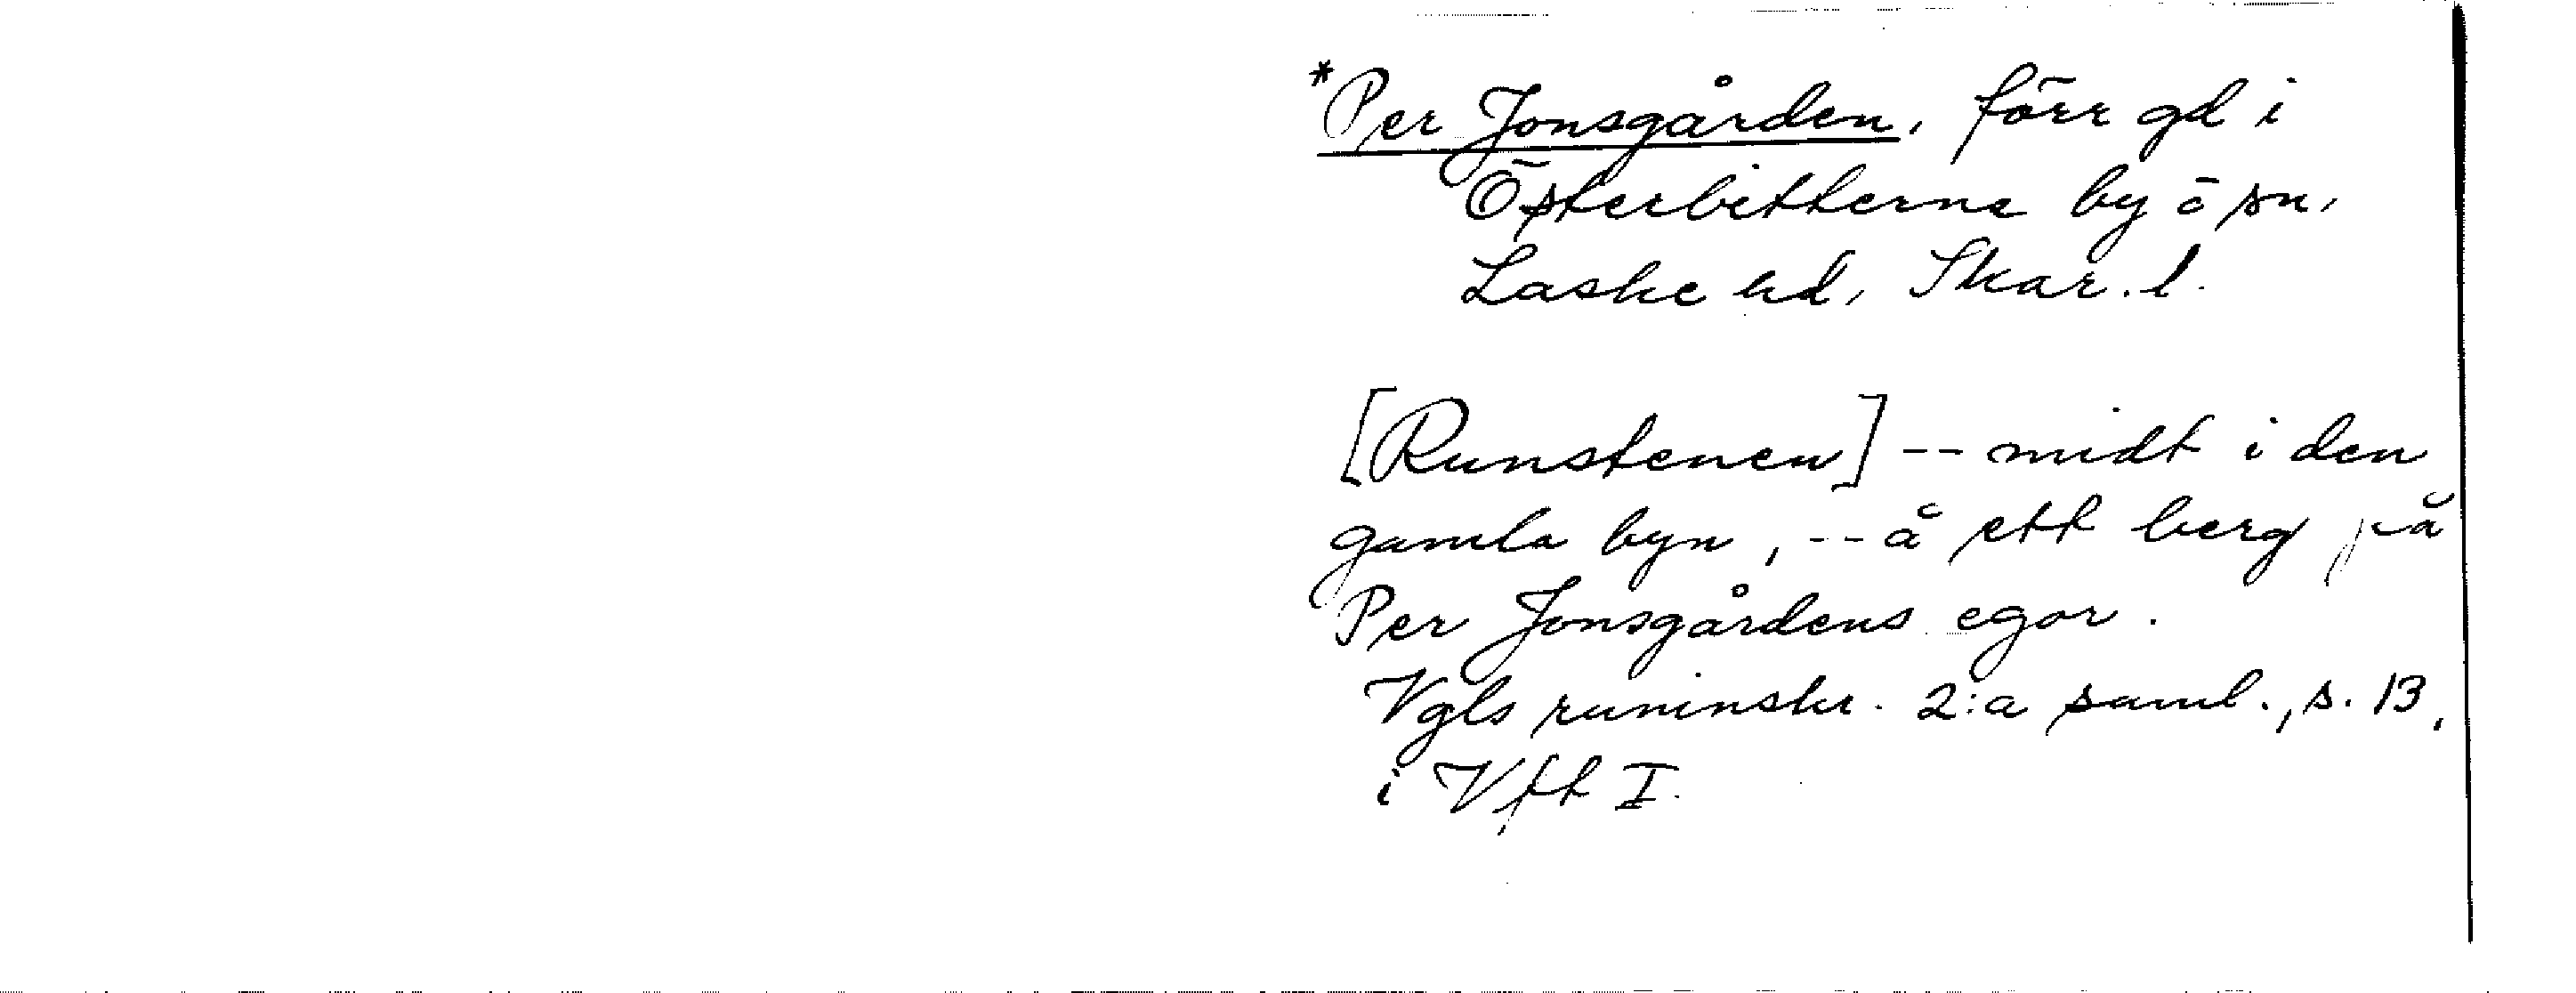 *Per Jonsgården, förr gd i
Österbitterna by o sn,
Laske hd, Skar. l.
[Runstenen] -- midt i den
gamla byn, -- å ett berg på
Per Jonsgårdens egor.
Vgls runinskr. 2:a saml., s. 13,
i Vft I.